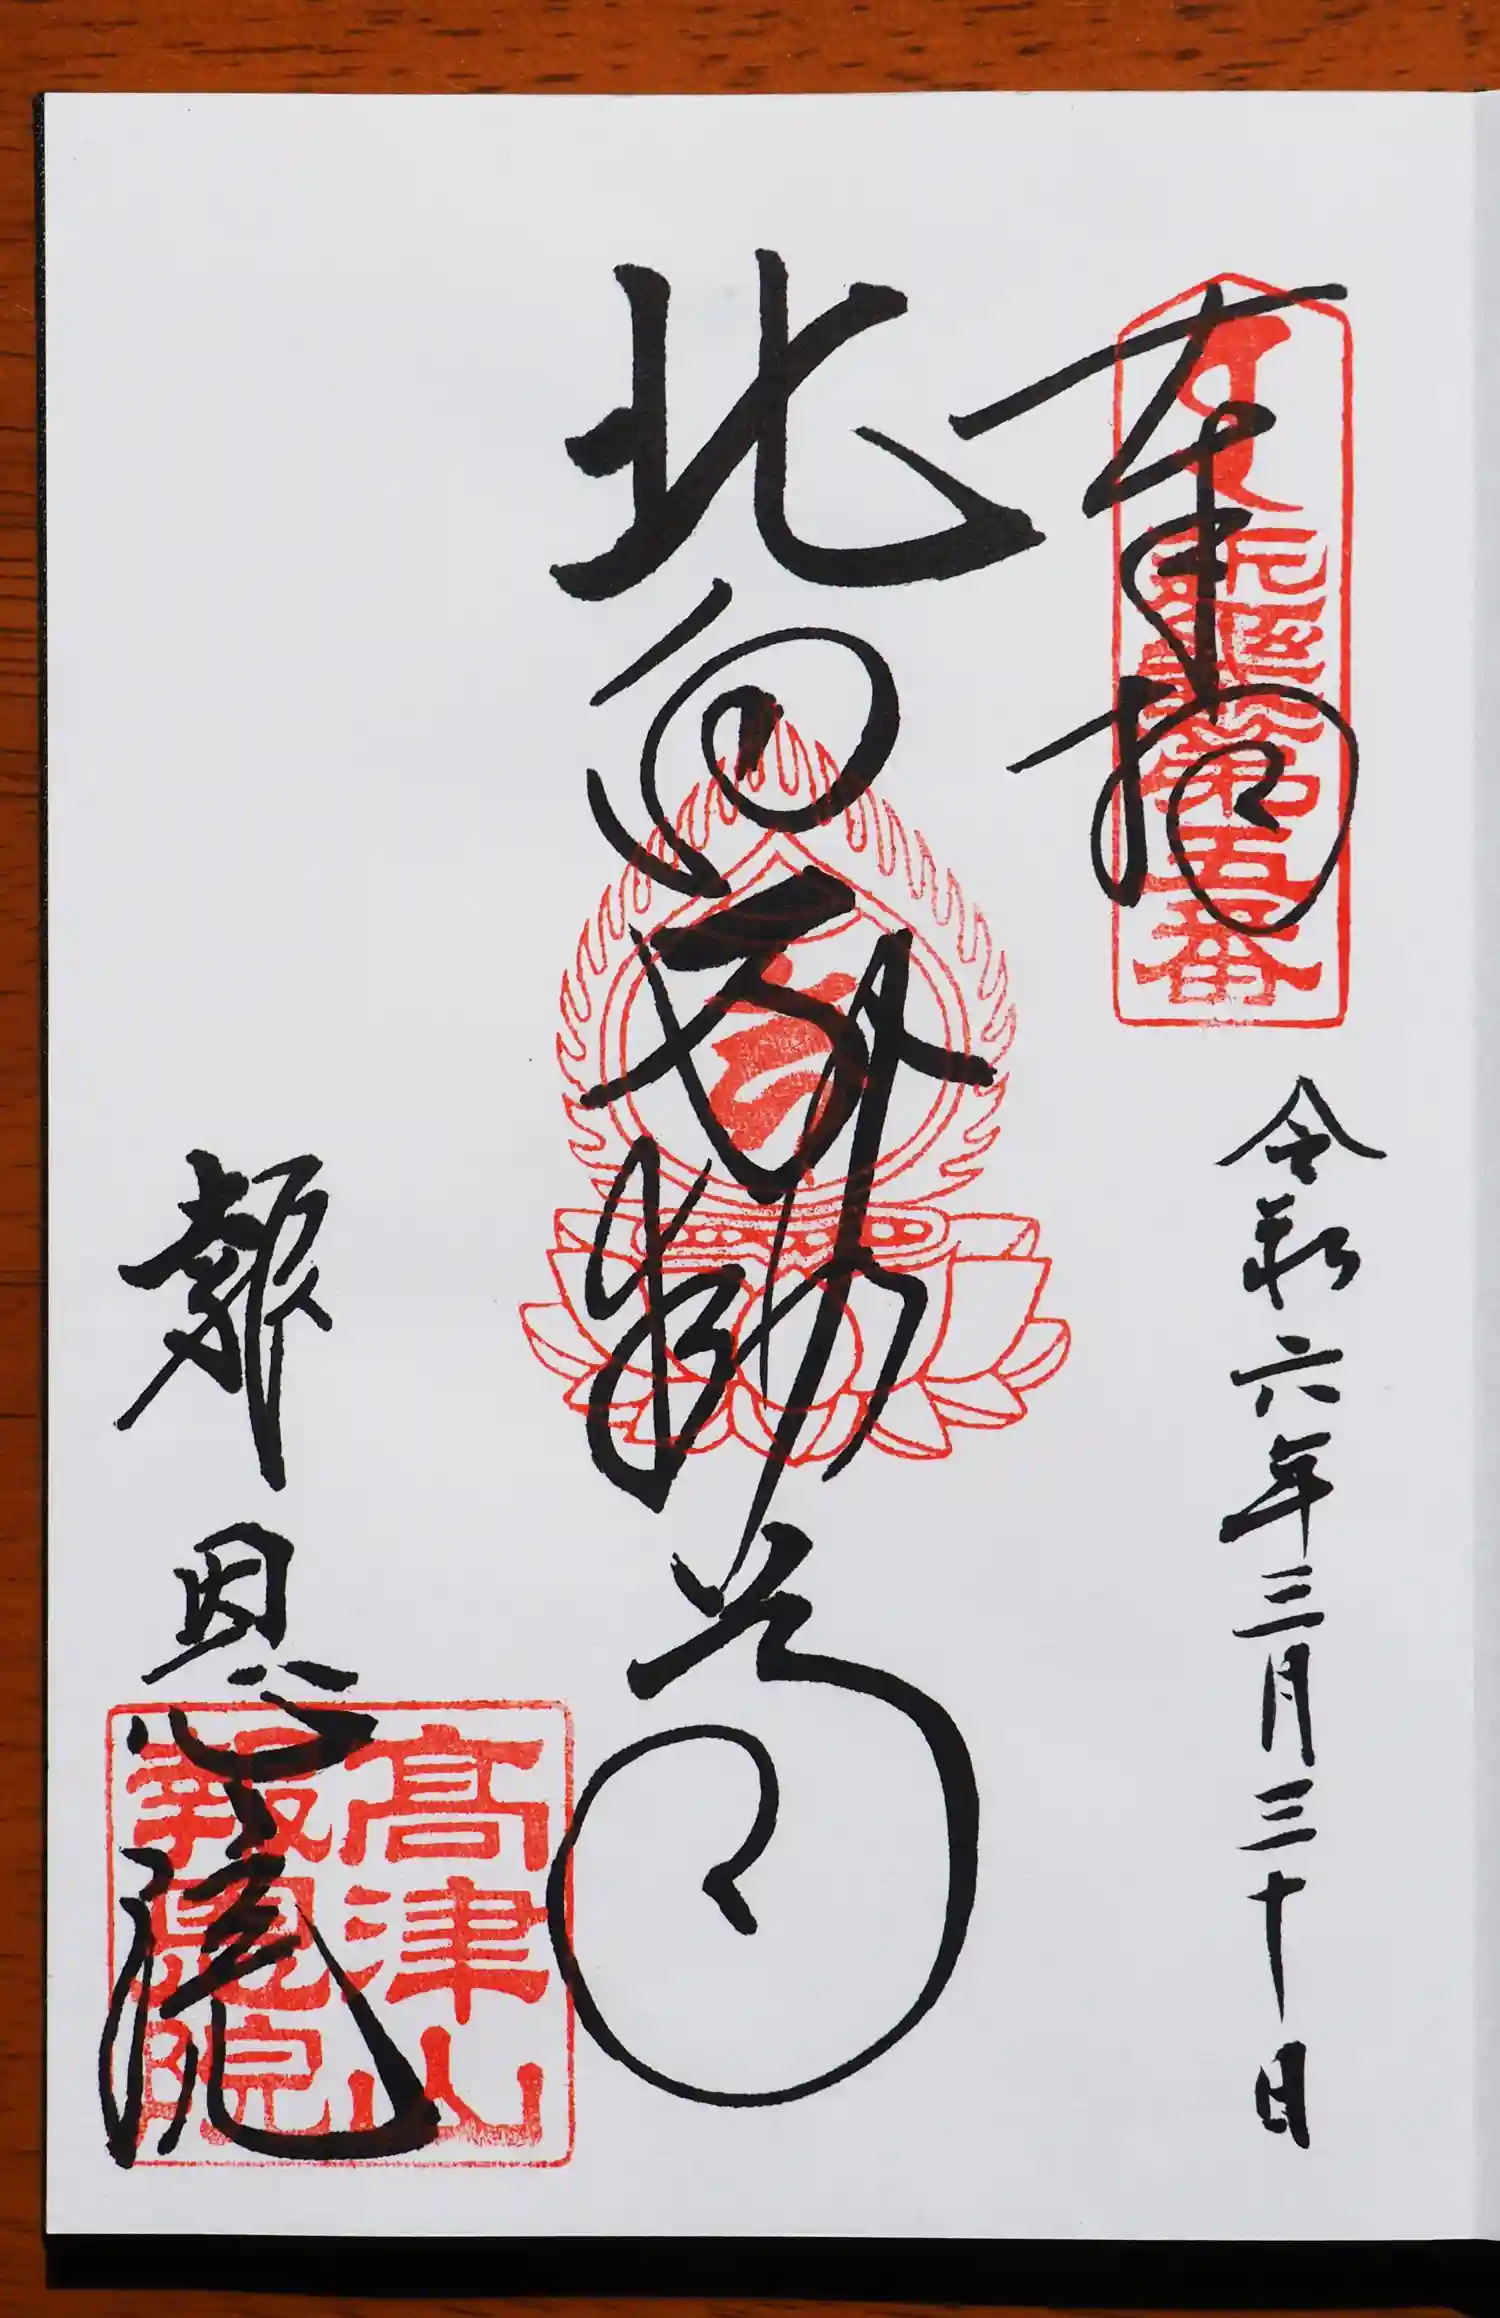 奉拝
第五番
令和六年三月三十日
北向不動尊
報恩院
高津山
報恩院